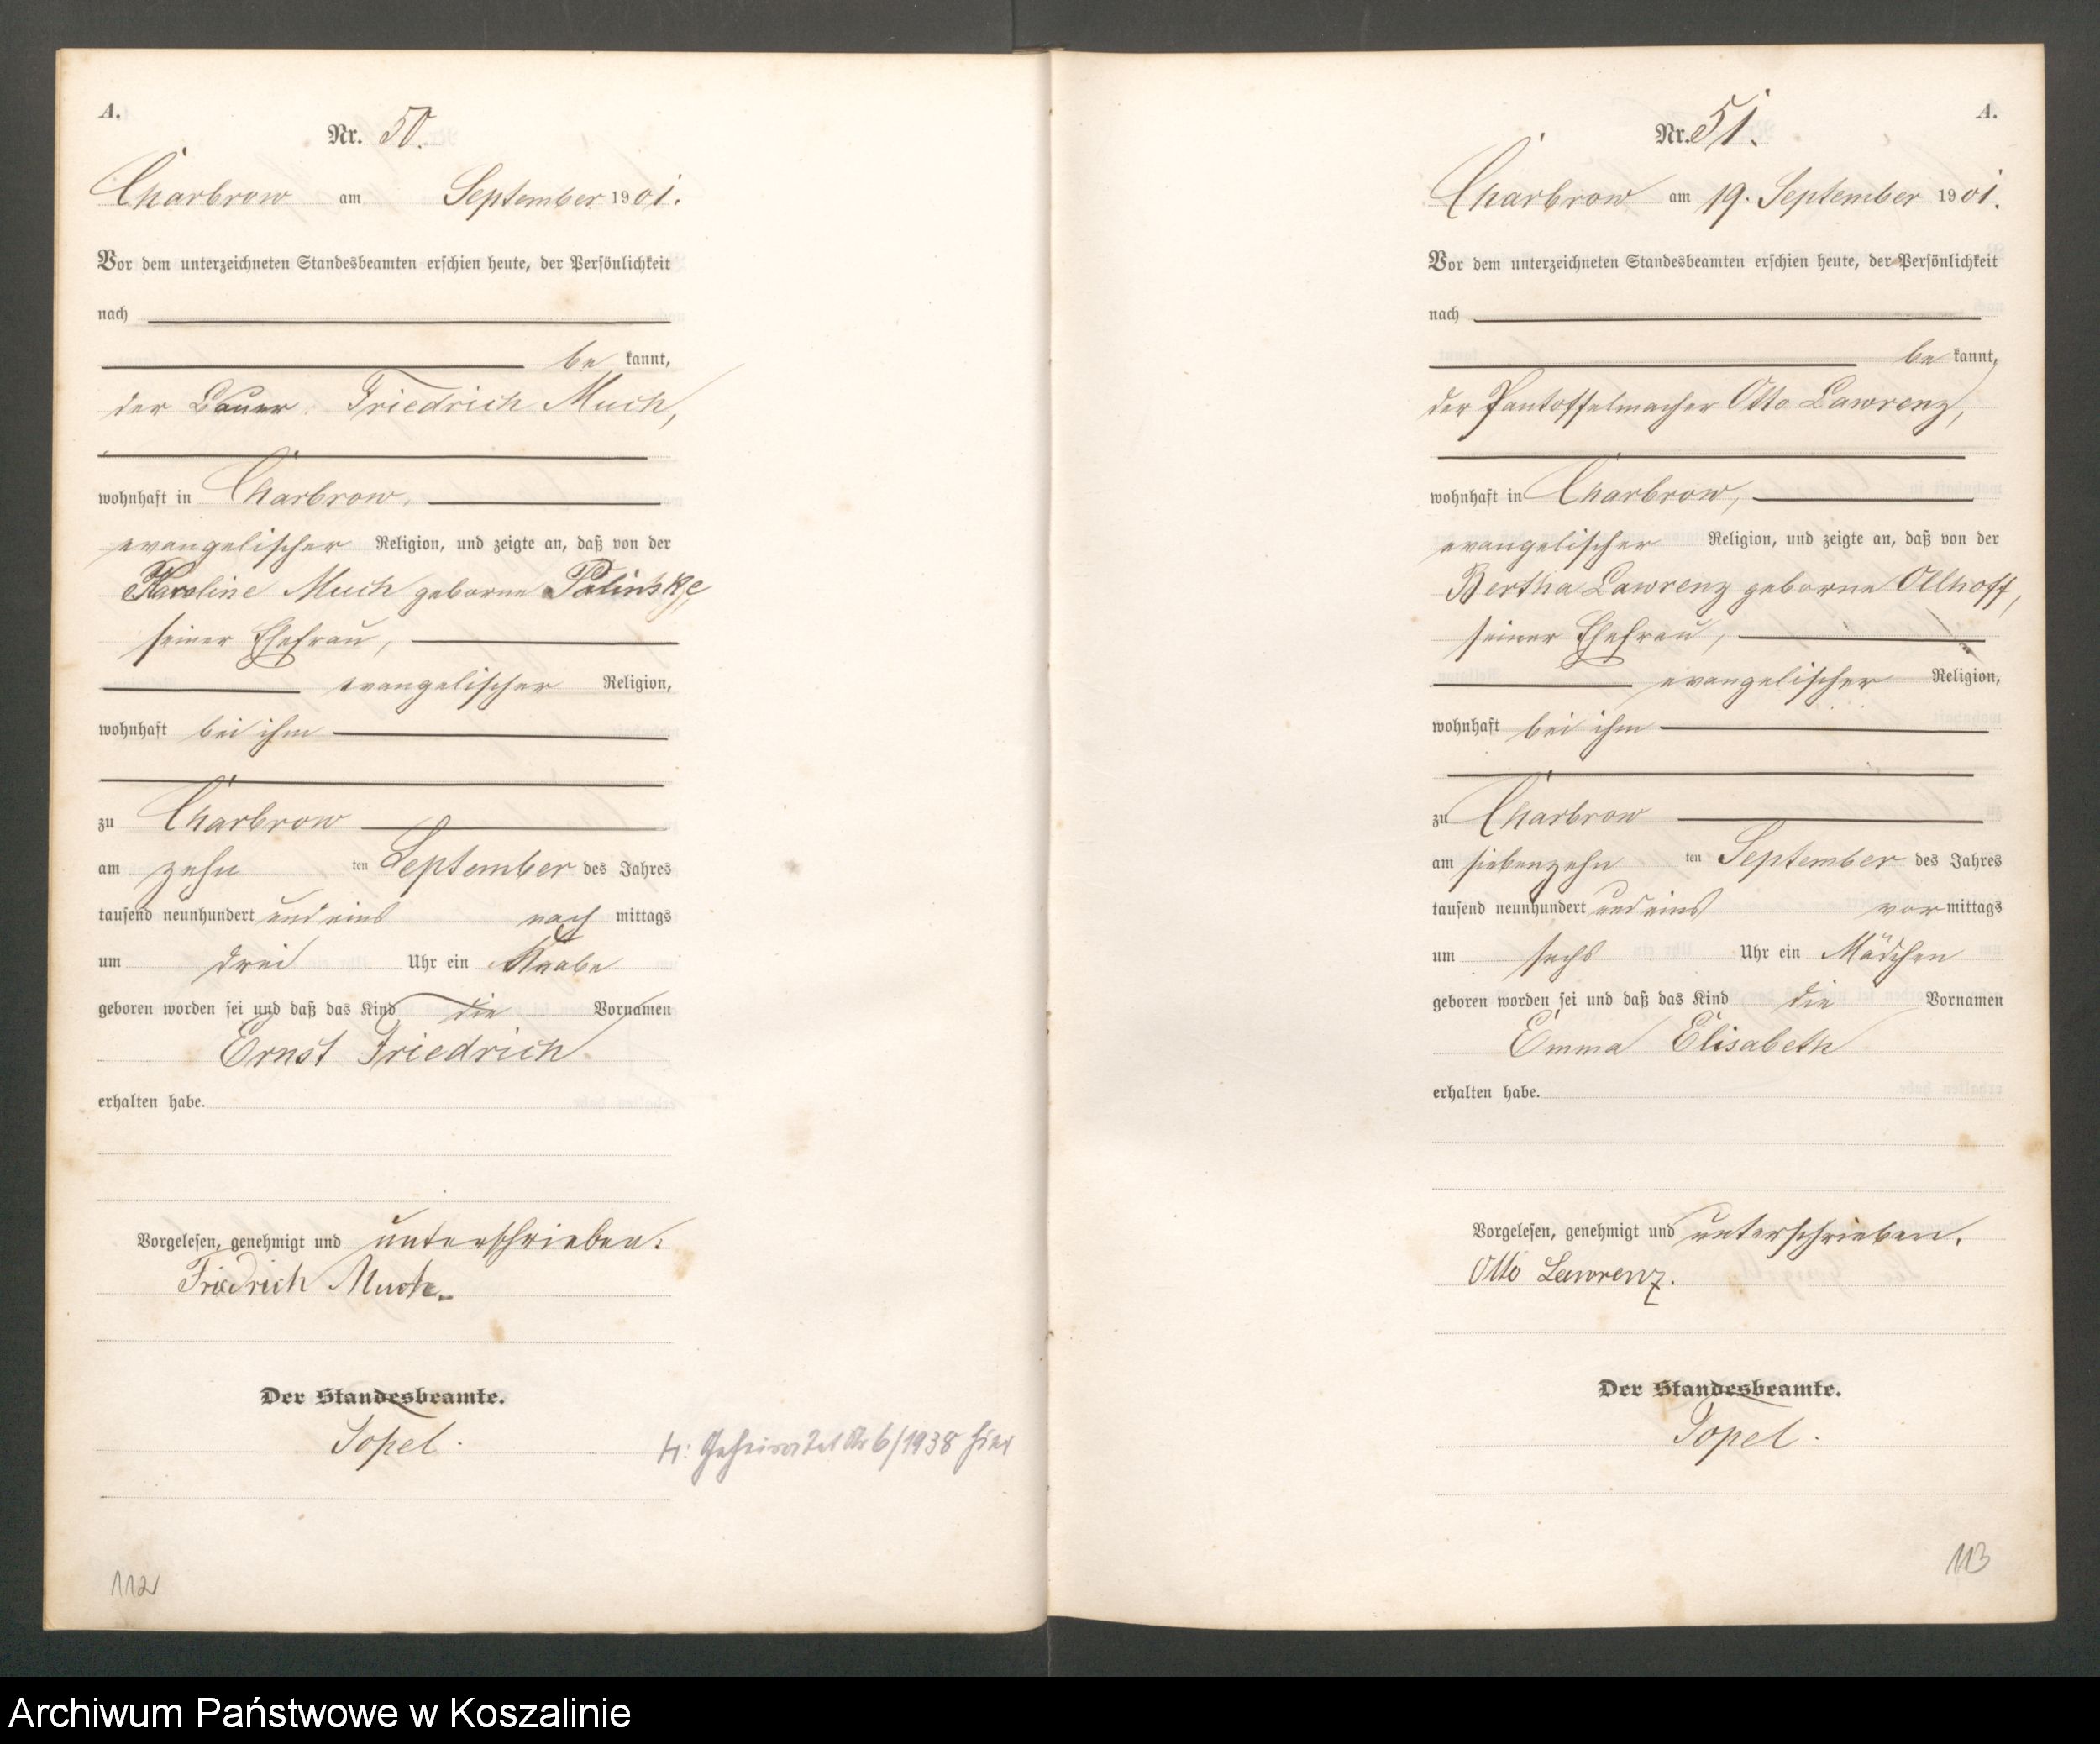 A.
Nr. 50.
Charbrow am September 1901.
Vor dem unterzeichneten Standesbeamten erschien heute, der Persönlichkeit
nach
be kannt,
der Bauer Friedrich Much,
wohnhaft in Charbrow,
evangelischer Religion, und zeigte an, daß von der
Karoline Much geborne
seiner Ehefrau,
evangelischer Religion,
wohnhaft bei ihm
zu Charbrow
am zehn ten September des Jahres
tausend neunhundert und eins nach mittags
um drei Uhr ein Knabe
geboren worden sei und daß das Kind die Vornamen
Ernst Friedrich
erhalten habe.
Vorgelesen, genehmigt und unterschrieben.
Friedrich Much.
Der Standesbeamte.
Topel.
H: Geheiratet Nr 6/1938 hier
112
A.
Nr. 51.
Charbrow am 19. September 1901.
Vor dem unterzeichneten Standesbeamten erschien heute, der Persönlichkeit
nach
be kannt,
der Pantoffelmacher Otto Lawrenz,
wohnhaft in Charbrow,
evangelischer Religion, und zeigte an, daß von der
Bertha Lawrenz geborne Ollhoff,
seiner Ehefrau,
evangelischer Religion,
wohnhaft bei ihm
zu Charbrow
am siebenzehn ten September des Jahres
tausend neunhundert und eins vor mittags
um sechs Uhr ein Mädchen
geboren worden sei und daß das Kind die Vornamen
Emma Elisabeth
erhalten habe.
Vorgelesen, genehmigt und unterschrieben.
Otto Lawrenz.
Der Standesbeamte.
Topel.
113
Archiwum Państwowe w Koszalinie